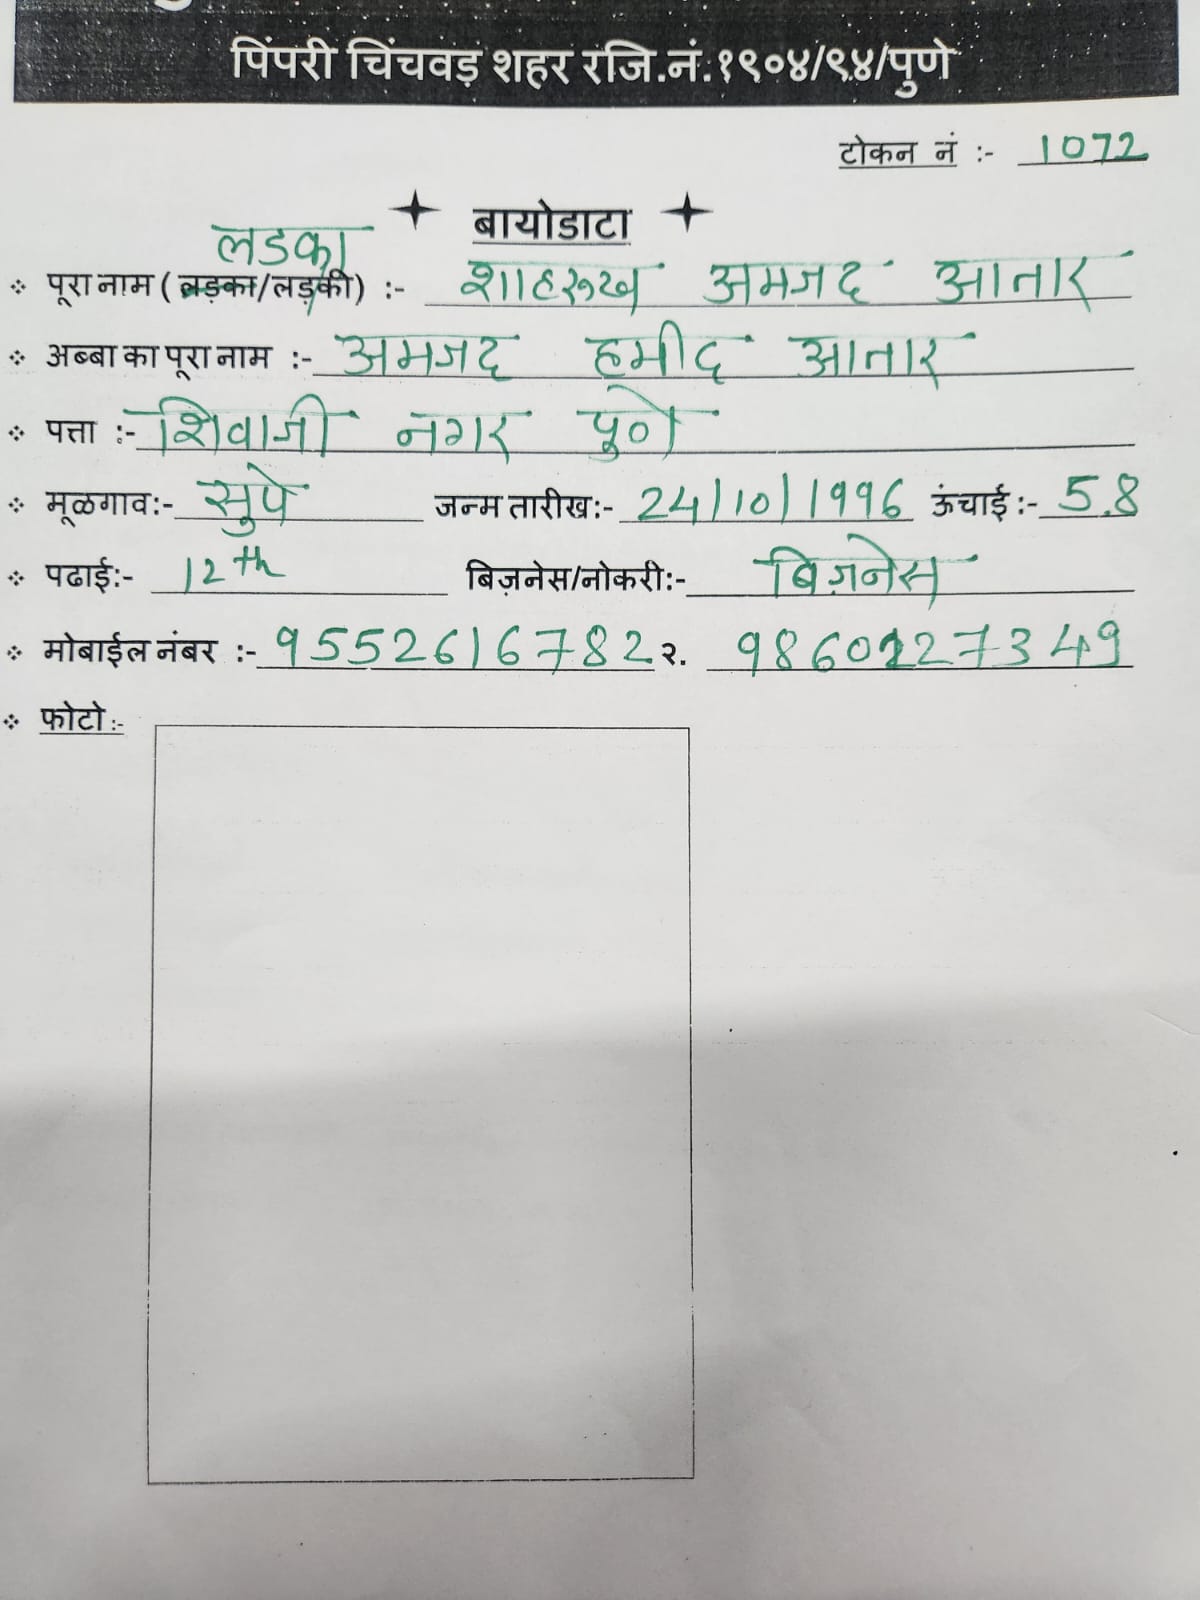 पिंपरी चिंचवड़ शहर रजि.नं.१९०४/९४/पुणे
टोकन नं :- 1072
बायोडाटा
लडका
पूरा नाम ( लड़का/लड़की) :- शाहरूख अमजद आतार
अब्बा का पूरा नाम :- अमजद हमीद आतार
पत्ता :- शिवाजी नगर पूणे
मूळगाव:- सुपे जन्म तारीख:- 24/10/1996 ऊंचाई:- 5.8
पढाई:- 12th बिज़नेस/नोकरी:- बिज़नेस
मोबाईल नंबर :- 9552616782 २. 9860227349
फोटो:-